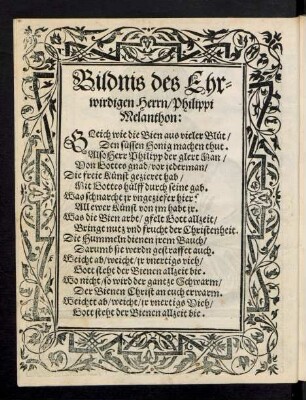 Bildnis des Ehr-
wirdigen Herrn/Philippi
Melanthon:
Gleich wie die Bien aus vieler Blüt/
Den süssen Honig machen thut.
Also Herr Philipp der glert Man/
Von Gottes gnad/vor jederman/
Die freie Künst gezieret hab/
Mit Gottes hülff durch seine gab.
Was schnarcht jr vngeziefer hier?
All ewre Künst von jm habt jr.
Was die Bien arbt/gfelt Gott allzeit/
Bringt nutz vnd frucht der Christenheit.
Die Hummeln dienen jrem Bauch/
Darumb sie werdn gestraffet auch.
Weicht ab/weicht/jr vnertige vieh/
Gott steht der Bienen allzeit bie.
Wo nicht/so wird der gantze Schwarm/
Der Bienen Christ an euch erwarm.
Weichet ab/weicht/jr vnertigs Vieh/
Gott steht der Bienen allzeit bie.